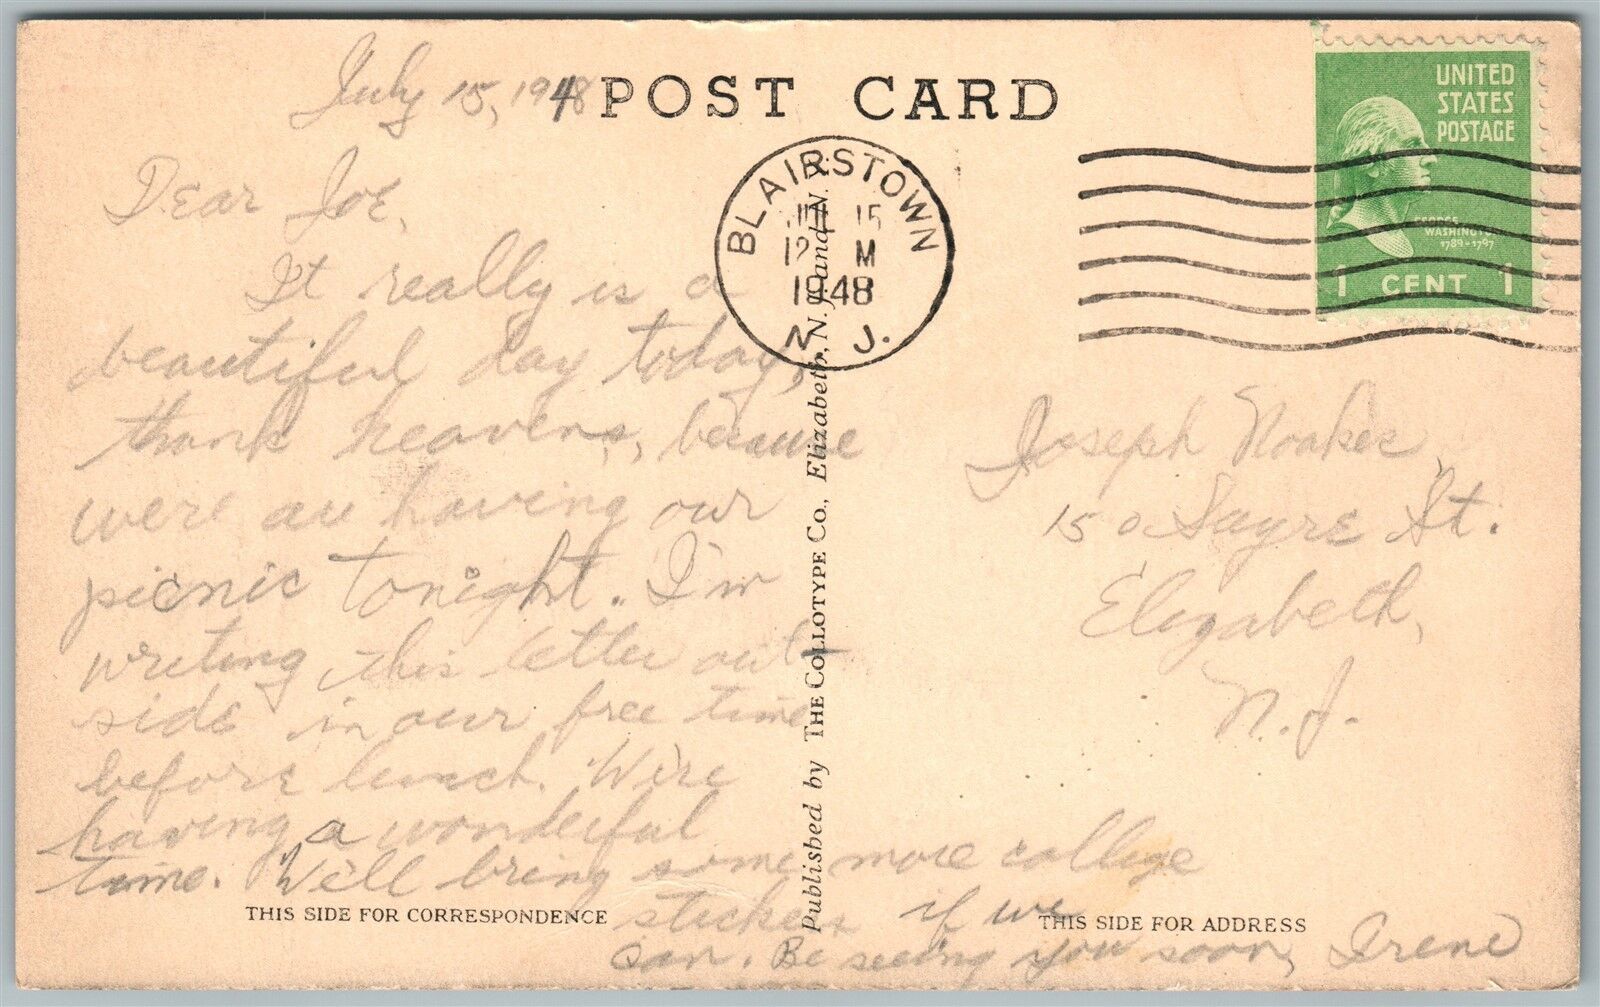 July 15, 1948
POST CARD
UNITED
STATES
POSTAGE
GEORGE
WASHINGTON
1789-1797
1 CENT 1
BLAIRSTOWN
15
12 M
1948
N. J.
Dear Joe,
It really is a
beautiful day today,
thank heavens, because
were all having our
picnic tonight. I'm
writing this letter out-
side in our free time
before lunch. We're
having a wonderful
time. We'll bring some more college
stickers if we
can. Be seeing you soon, Irene
THIS SIDE FOR CORRESPONDENCE
Published by THE COLLOTYPE Co., Elizabeth, N. J. and N. Y.
Joseph Noakes
150 Sayre St.
Elizabeth,
N.J.
THIS SIDE FOR ADDRESS